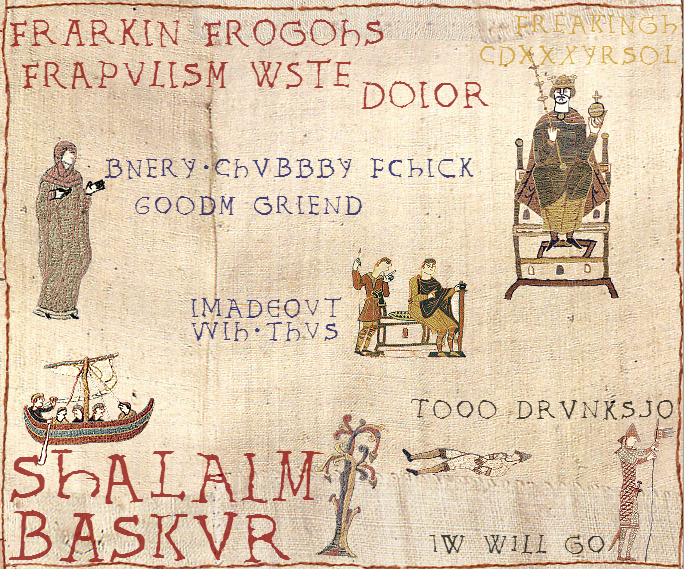 FRARKIN FROGOhS
FREAKINGh
CDXXXYRSOL
FRAPVLISM WSTE
DOIOR
BNERY·ChVBBBY FChICK
GOODM GRIEND
IMADEOVT
WIh·ThVS
TOOO DRVNKSJO
ShALAIM
BASKVR
IW WILL GO